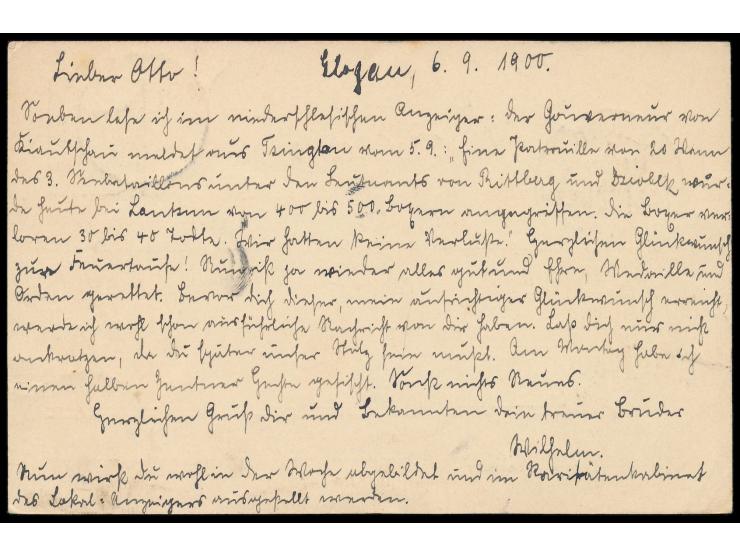 Lieber Otto! Glogau, 6. 9. 1900.
Soeben lese ich im niederschlesischen Anzeiger: der Gouverneur von
Kiautschau meldet aus Tsingtau vom 5.9.: „Eine Patrouille von 20 Mann
des 3. Seebataillons unter den Leutnants von Rittberg und Dziobek wur-
de heute bei Lantsun von 400 bis 500 Boxern angegriffen. Die Boxer ver-
loren 30 bis 40 Todte. Wir hatten keine Verluste." Herzlichen Glückwunsch
zur Feuertaufe! Nun ist ja wieder alles gut und Ehre, Medaille und
Orden gerettet. Bevor dich dieser, mein aufrichtiger Glückwunsch erreicht,
werde ich wohl schon ausführliche Nachricht von dir haben. Laß dich nur nicht
ankratzen, da du später unser Stolz sein mußt. Am Montag habe ich
einen halben Zentner Hechte gefischt. Sonst nichts Neues.
Herzlichen Gruß dir und Bekannten dein treuer Bruder
Wilhelm.
Nun wirst du wohl in der Woche abgebildet und im Raritätenkabinet
des Lokal-Anzeigers ausgestellt werden.